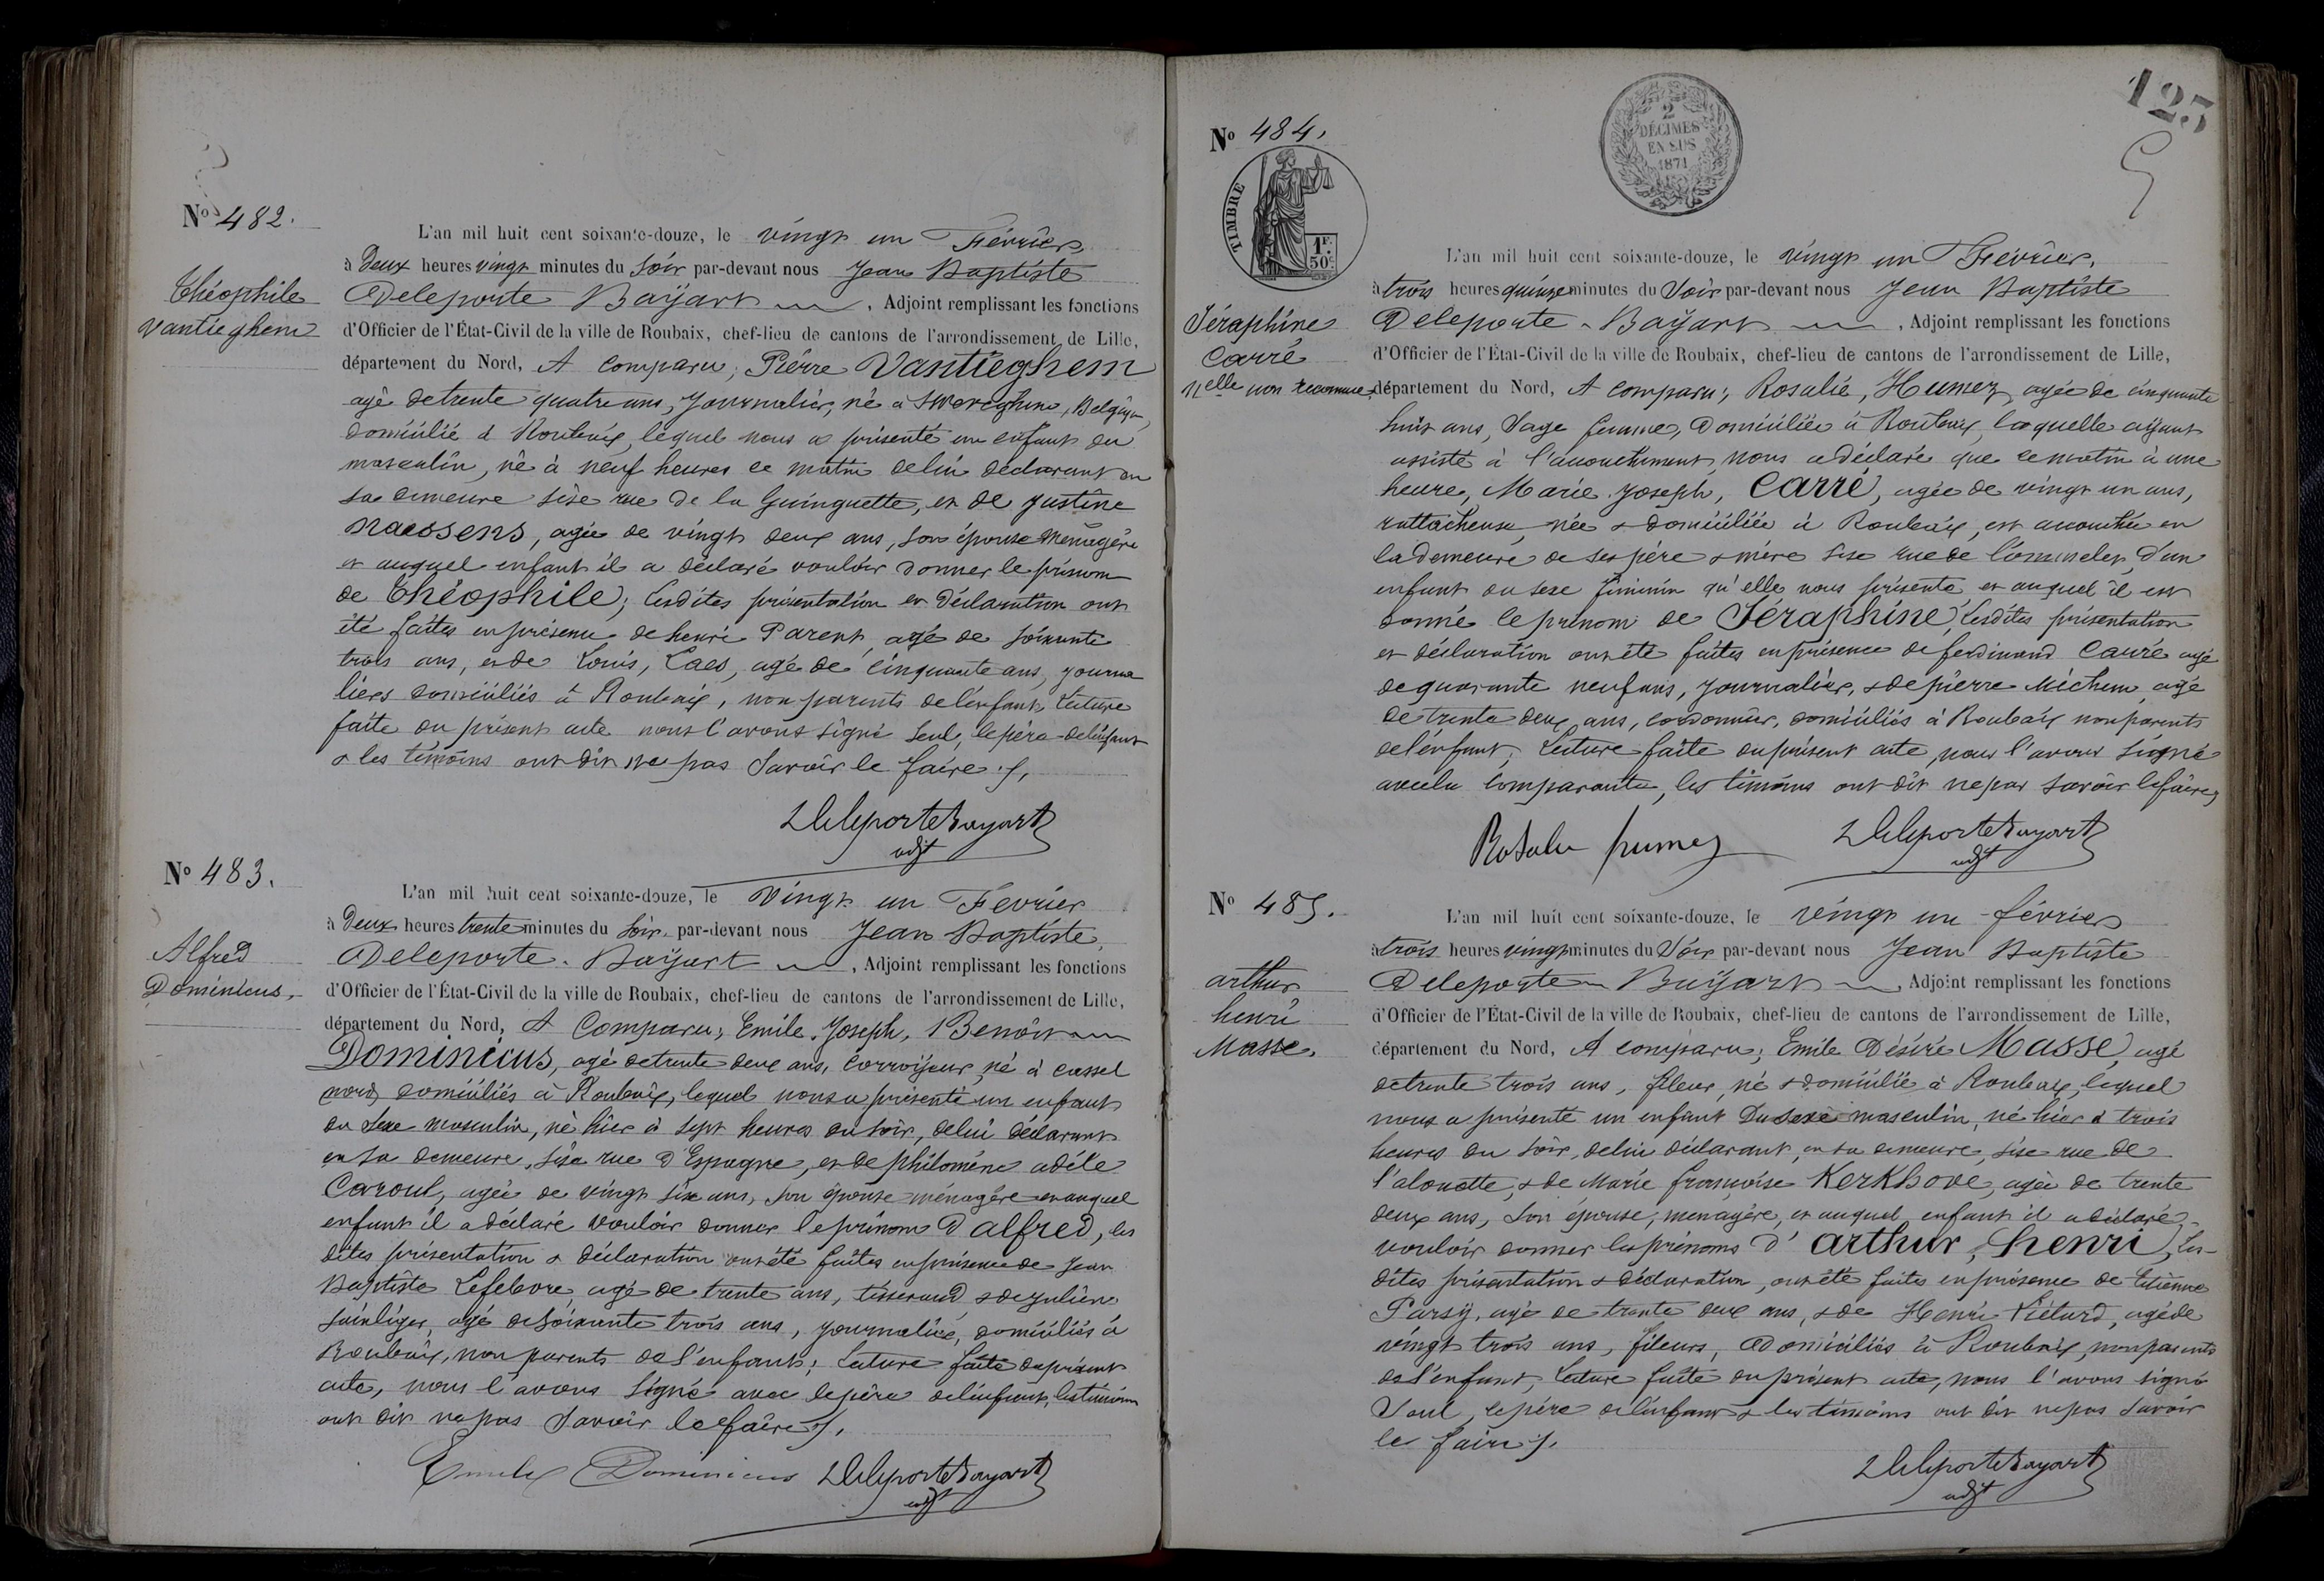 N° 482.
Théophile
Vantieghem
L'an mil huit cent soixante-douze, le vingt un Février
à Deux heures vingt minutes du soir par-devant nous Jean Baptiste
Deleporte Bayart, Adjoint remplissant les fonctions
d'Officier de l'État-Civil de la ville de Roubaix, chef-lieu de cantons de l'arrondissement de Lille,
département du Nord, A comparu, Pierre Vantieghem
agé de trente quatre ans, journalier, né à Belgique,
domicilié à Roubaix, lequel nous a présenté un enfant du
masculin, né à neuf heures ce matin de lui déclarant en
sa demeure sise rue de la Guinguette, et de justine
Naessens, agée de vingt deux ans, son épouse ménagère
et auquel enfant il a déclaré vouloir donner le prénom
de Théophile; lesdites présentation et déclaration ont
été faites en présence de henri Parent, agé de soixante
trois ans, et de Louis, Caes, agé de cinquante ans, journa
liers domiciliés à Roubaix, non parents de l'enfant, lecture
faite du présent acte nous l'avons signé seul, le père de l'enfant
& les témoins ont dit ne pas savoir le faire ./.
Deleporte Bayart
adjt
N° 483.
Alfred
Dominicus.
L'an mil huit cent soixante-douze, le vingt un Février
à Deux heures trente minutes du soir par-devant nous Jean Baptiste
Deleporte - Bayart, Adjoint remplissant les fonctions
d'Officier de l'État-Civil de la ville de Roubaix, chef-lieu de cantons de l'arrondissement de Lille,
département du Nord, A Comparu, Emile, Joseph, Benoit
Dominicus, agé de trente deux ans, corroyeur, né à cassel
nord, domiciliés à Roubaix, lequel nous a présenté un enfant
du sexe masculin, né hier à sept heures du soir, de lui déclarant
en sa demeure, sise rue d'Espagne, et de philomène adèle
Caroul, agée de vingt six ans, son épouse ménagère et auquel
enfant il a déclaré vouloir donner le prénom d'alfred, les
dites présentation & déclaration ont été faites en présence de Jean
Baptiste Lefebvre, agé de trente ans, tisserand & de julien
agé de soixante trois ans, journalier, domiciliés à
Roubaix, non parents de l'enfant; lecture faite du présent
acte, nous l'avons signé avec le père de l'enfant, les témoins
ont dit ne pas savoir le faire ./.
Emile Dominicus Deleporte Bayart
adjt
125
2
DÉCIMES
EN SUS
1871
N° 484.
TIMBRE
1F.
50c.
Séraphine
Carré
nelle non reconnue
L'an mil huit cent soixante-douze, le vingt un Février,
à trois heures quinze minutes du soir par-devant nous Jean Baptiste
Deleporte - Bayart, Adjoint remplissant les fonctions
d'Officier de l'État-Civil de la ville de Roubaix, chef-lieu de cantons de l'arrondissement de Lille,
département du Nord, A comparu, Rosalie, Humez, agée de cinquante
huit ans, Sage femme, domiciliée à Roubaix, laquelle ayant
assisté à l'accouchement nous a déclaré que ce matin à une
heure, Marie Joseph, Carré, agée de vingt un ans,
rattacheuse, née & domiciliée à Roubaix, est accouchée en
la demeure de ses père & mère sise rue de l'ommelet, d'un
enfant du sexe féminin qu'elle nous présente et auquel il est
donné le prénom de Séraphine, lesdites présentation
et déclaration ont été faites en présence de ferdinand Carré agé
de quarante neuf ans, journalier, & de pierre Michem, agé
de trente deux ans, cordonnier, domiciliés à Roubaix non parents
de l'enfant, lecture faite du présent acte, nous l'avons signé
avec la comparante, les témoins ont dit ne pas savoir le faire
Rosalie humez Deleporte Bayart
adjt
N° 485.
arthur
henri
Masse.
L'an mil huit cent soixante-douze, le vingt un février
à trois heures vingt minutes du Soir par-devant nous Jean Baptiste
Deleporte Bayart, Adjoint remplissant les fonctions
d'Officier de l'État-Civil de la ville de Roubaix, chef-lieu de cantons de l'arrondissement de Lille,
département du Nord, A comparu, Emile Désiré Masse, agé
de trente trois ans, fileur, né & domicilié à Roubaix, lequel
nous a présenté un enfant du sexe masculin, né hier à trois
heures du soir, de lui déclarant, en sa demeure, sise rue de
l'alouette, & de Marie françoise Kerkhove, agée de trente
deux ans, son épouse, menagère, et auquel enfant il a déclaré
vouloir donner les prénoms d'arthur, henri, les-
dites présentation & déclaration, ont été faites en présence de Etienne
Parsy, agé de trente deux ans, & de Henri Liétard, agé de
vingt trois ans, fileurs, domiciliés à Roubaix, non parents
de l'enfant, lecture faite du présent acte, nous l'avons signé
Seul, le père de l'enfant & les témoins ont dit ne pas savoir
le faire ./.
Deleporte Bayart
adjt